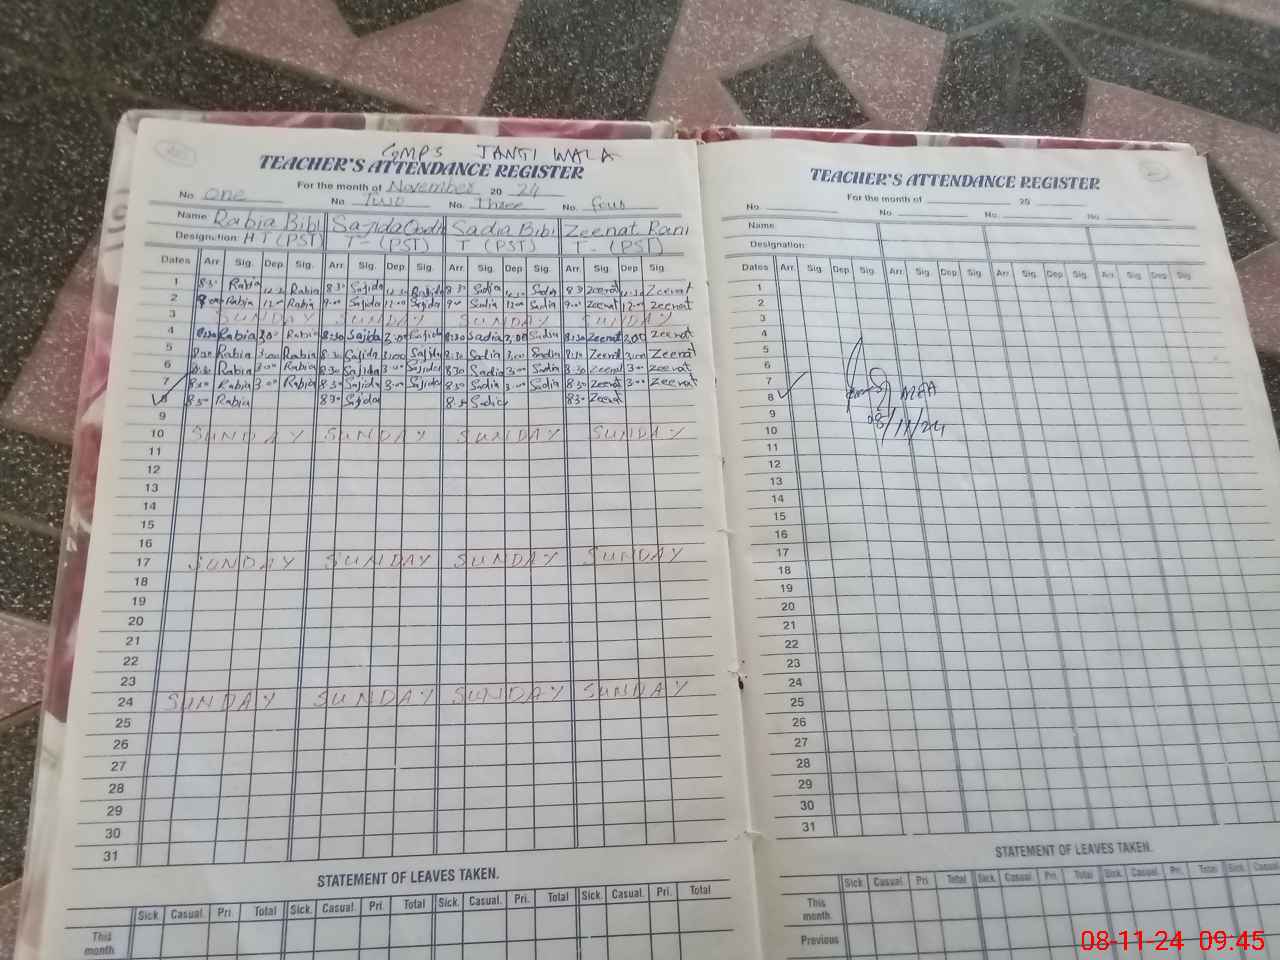 GGMPS JANGI WALA
TEACHER'S ATTENDANCE REGISTER
For the month of November 20 24
No. One No. Two No. Three No. four
Name Rabia Bibi Sajida Sadia Bibi Zeenat Rani
Designation: H T (PST) T - (PST) T (PST) T - (PST)
Dates Arr. Sig. Dep. Sig. Arr. Sig. Dep. Sig. Arr. Sig. Dep. Sig. Arr. Sig. Dep. Sig.
1 8:30 Rabia Rabia 8:30 Sajida Sajida 8:30 Sadia Sadia 8:30 Zeenat Zeenat
2 9:00 Rabia 12:00 Rabia 9:00 Sajida 12:00 Sajida 9:00 Sadia 12:00 Sadia 9:00 Zeenat 12:00 Zeenat
3 SUNDAY SUNDAY SUNDAY SUNDAY
4 8:30 Rabia 3:00 Rabia 8:30 Sajida 3:00 Sajida 8:30 Sadia 3:00 Sadia 8:30 Zeenat 3:00 Zeenat
5 8:30 Rabia 3:00 Rabia 8:30 Sajida 3:00 Sajida 8:30 Sadia 3:00 Sadia 8:30 Zeenat 3:00 Zeenat
6 8:30 Rabia 3:00 Rabia 8:30 Sajida 3:00 Sajida 8:30 Sadia 3:00 Sadia 8:30 Zeenat 3:00 Zeenat
7 8:30 Rabia 3:00 Rabia 8:30 Sajida 3:00 Sajida 8:30 Sadia 3:00 Sadia 8:30 Zeenat 3:00 Zeenat
8 8:30 Rabia 8:30 Sajida 8:30 Sadia 8:30 Zeenat
9
10 SUNDAY SUNDAY SUNDAY SUNDAY
11
12
13
14
15
16
17 SUNDAY SUNDAY SUNDAY SUNDAY
18
19
20
21
22
23
24 SUNDAY SUNDAY SUNDAY SUNDAY
25
26
27
28
29
30
31
STATEMENT OF LEAVES TAKEN.
Sick. Casual. Pri. Total Sick. Casual. Pri. Total Sick. Casual. Pri. Total Sick. Casual. Pri. Total
This
month
TEACHER'S ATTENDANCE REGISTER
For the month of 20
No. No. No. No.
Name
Designation:
Dates Arr. Sig. Dep. Sig. Arr. Sig. Dep. Sig. Arr. Sig. Dep. Sig. Arr. Sig. Dep. Sig.
1
2
3
4
5
6
7
8 MEA
9 08/11/24
10
11
12
13
14
15
16
17
18
19
20
21
22
23
24
25
26
27
28
29
30
31
STATEMENT OF LEAVES TAKEN.
Sick. Casual. Pri. Total Sick. Casual. Pri. Total Sick. Casual. Pri. Total Sick. Casual.
This
month.
Previous
08-11-24 09:45